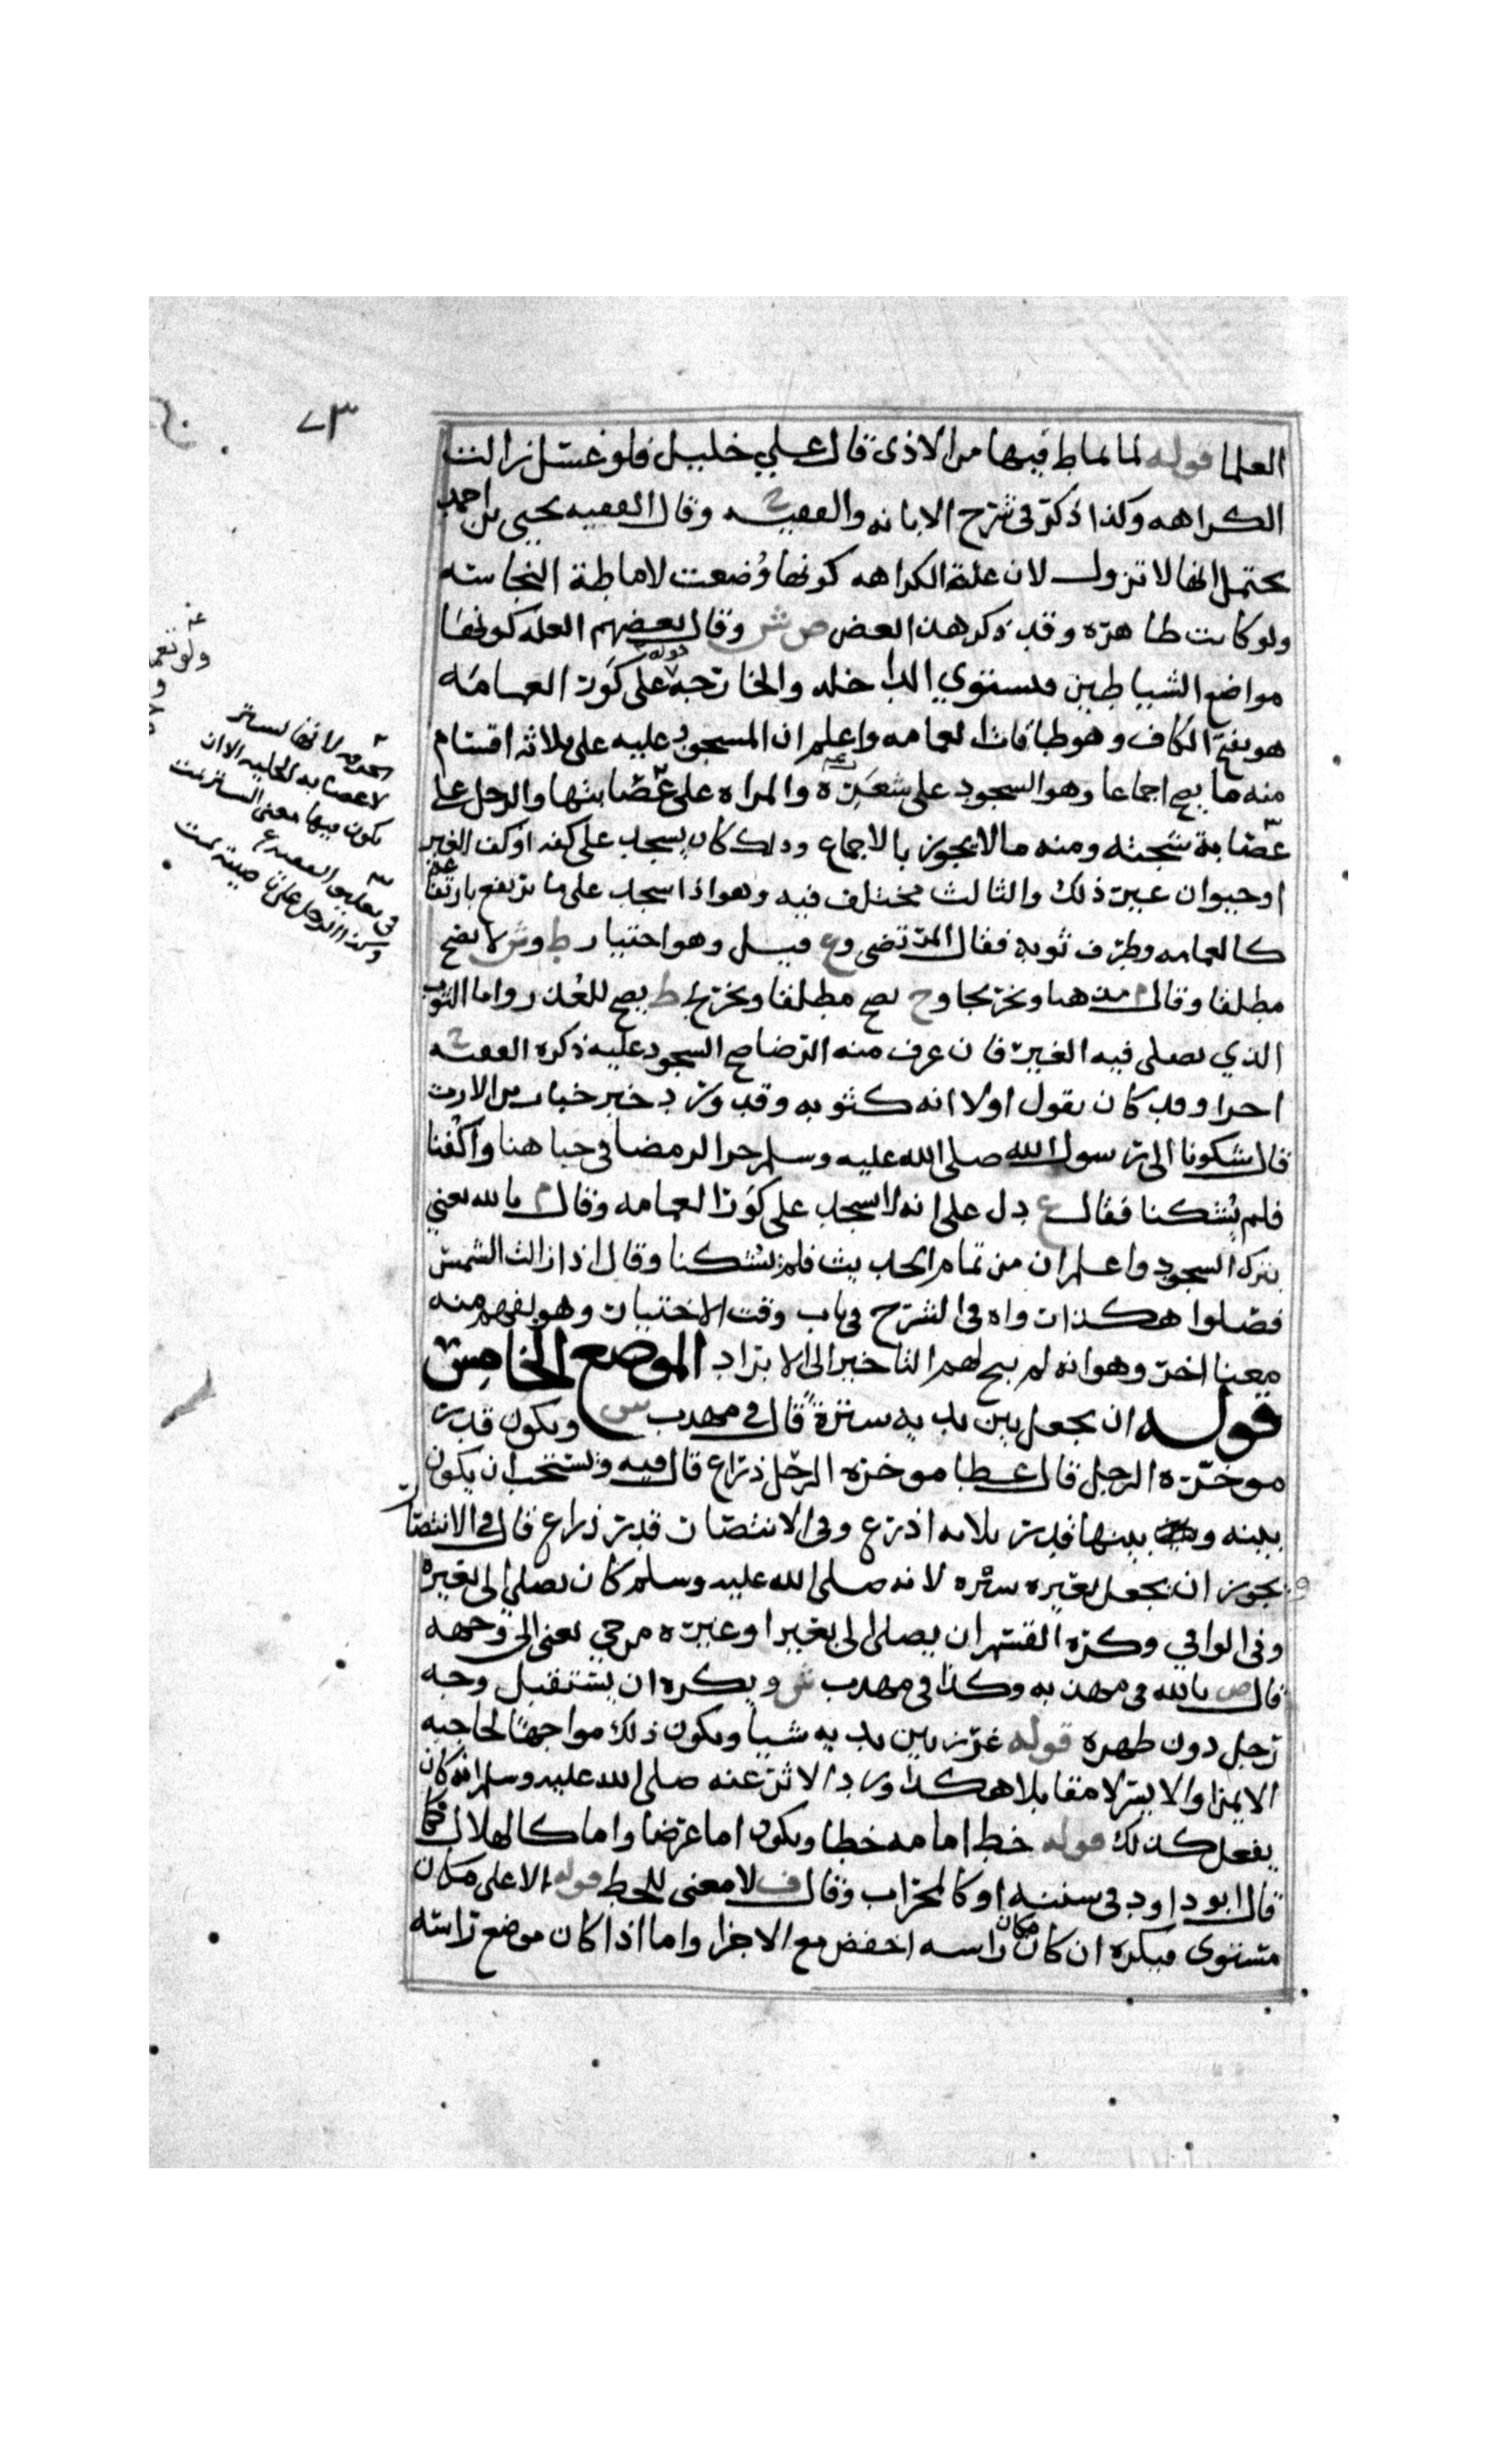 ٧٣
العلما قوله لما يماط فيها من الاذى قال علي خليل فلو غسل زالت
الكراهه وكذا ذكر في شرح الابانه والفقيه ح وقال الفقيه يحيى بن احمد
يحتمل انها لا تزول لان علة الكراهه كونها وُضعت لاماطة النجاسه
ولو كانت طاهره وقد ذكر هذا بعض ص ش وقال بعضهم العله كونها
مواضع الشياطين فيستوي الداخله والخارجه قوله على كَوْر العمامه
هو بفتح الكاف وهو طاقات العمامه واعلم ان المسجود عليه على ثلاثه اقسام
منه ما يصح اجماعا وهو السجود على شعَره والمراه على عصابتها والرجل على
عصابة شجته ومنه ما لا يجوز بالاجماع وذلك كان يسجد على كفه او كف الغير
او حيوان غير ذلك والثالث مختلف فيه وهو اذا سجد على ما يرتفع بارتفاعه
كالعمامه وطرف ثوبه فقال المرتضى وع وهو اختيار ط وش لا يصح
مطلقا وقال م وح يصح مطلقا وتخريج ط يصح للعذر واما الثوب
الذي يصلى فيه الغير فان عرف منه الرضا صح السجود عليه ذكره الفقيه ح
اخرا وقد كان يقول اولا انه كثوبه وقد ورد خبر خباب بن الارت
قال شكونا الى رسول الله صلى الله عليه وسلم حر الرمضا في جباهنا واكفنا
فلم يُشكنا فقال ع دل على انه لا يسجد على كَوْر العمامه وقال م بالله يعني
بترك السجود واعلم ان من تمام الحديث فلم يشكنا وقال اذا زالت الشمس
فصلوا هكذا رواه في الشرح في باب وقت الاختيار وهو يفهم منه
معنا اخر وهو انه لم يبح لهم التاخير الى الابراد الموضع الخامس
قوله ان يجعل بين يديه سترةً قال في مهذب ش ويكون قدر
موخرة الرحل قال عطا موخرة الرحل ذراع قال فيه ويستحب ان يكون
بينه وبينها قدر ثلاثه اذرع وفي الانتصار قدر ذراع قال في الانتصار
يجوز ان يجعل بعيره ستره لانه صلى الله عليه وسلم كان يصلي الى بعيره
وفي الوافي وكره القسم ان يصلى الى بعير او غيره من حي يعني الى وجهه
قال ص بالله في مهذبه وكذا في مهذب ش ويكره ان يستقبل وجه
رجل دون ظهره قوله غرز بين يديه شيا ويكون ذلك مواجها لحاجبه
الايمن او الايسر لا مقابلا هكذا ورد الاثر عنه صلى الله عليه وسلم انه كان
يفعل كذلك قوله خط امامه خطا ويكون اما عرضا واما كالهلال كما
قال ابو داود في سننه او كالمحراب وقال ف لا معنى للخط قوله الا على مكان
مستوى فيكره ان كان مكان راسه اخفض مع الاجزا واما اذا كان موضع راسه